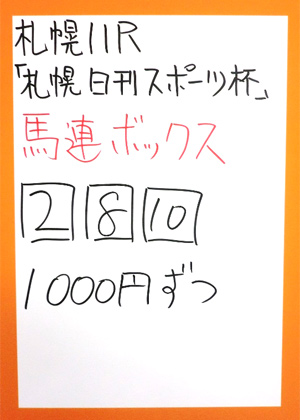 札幌11R
「札幌日刊スポーツ杯」
馬連ボックス
2 8 10
1000円ずつ